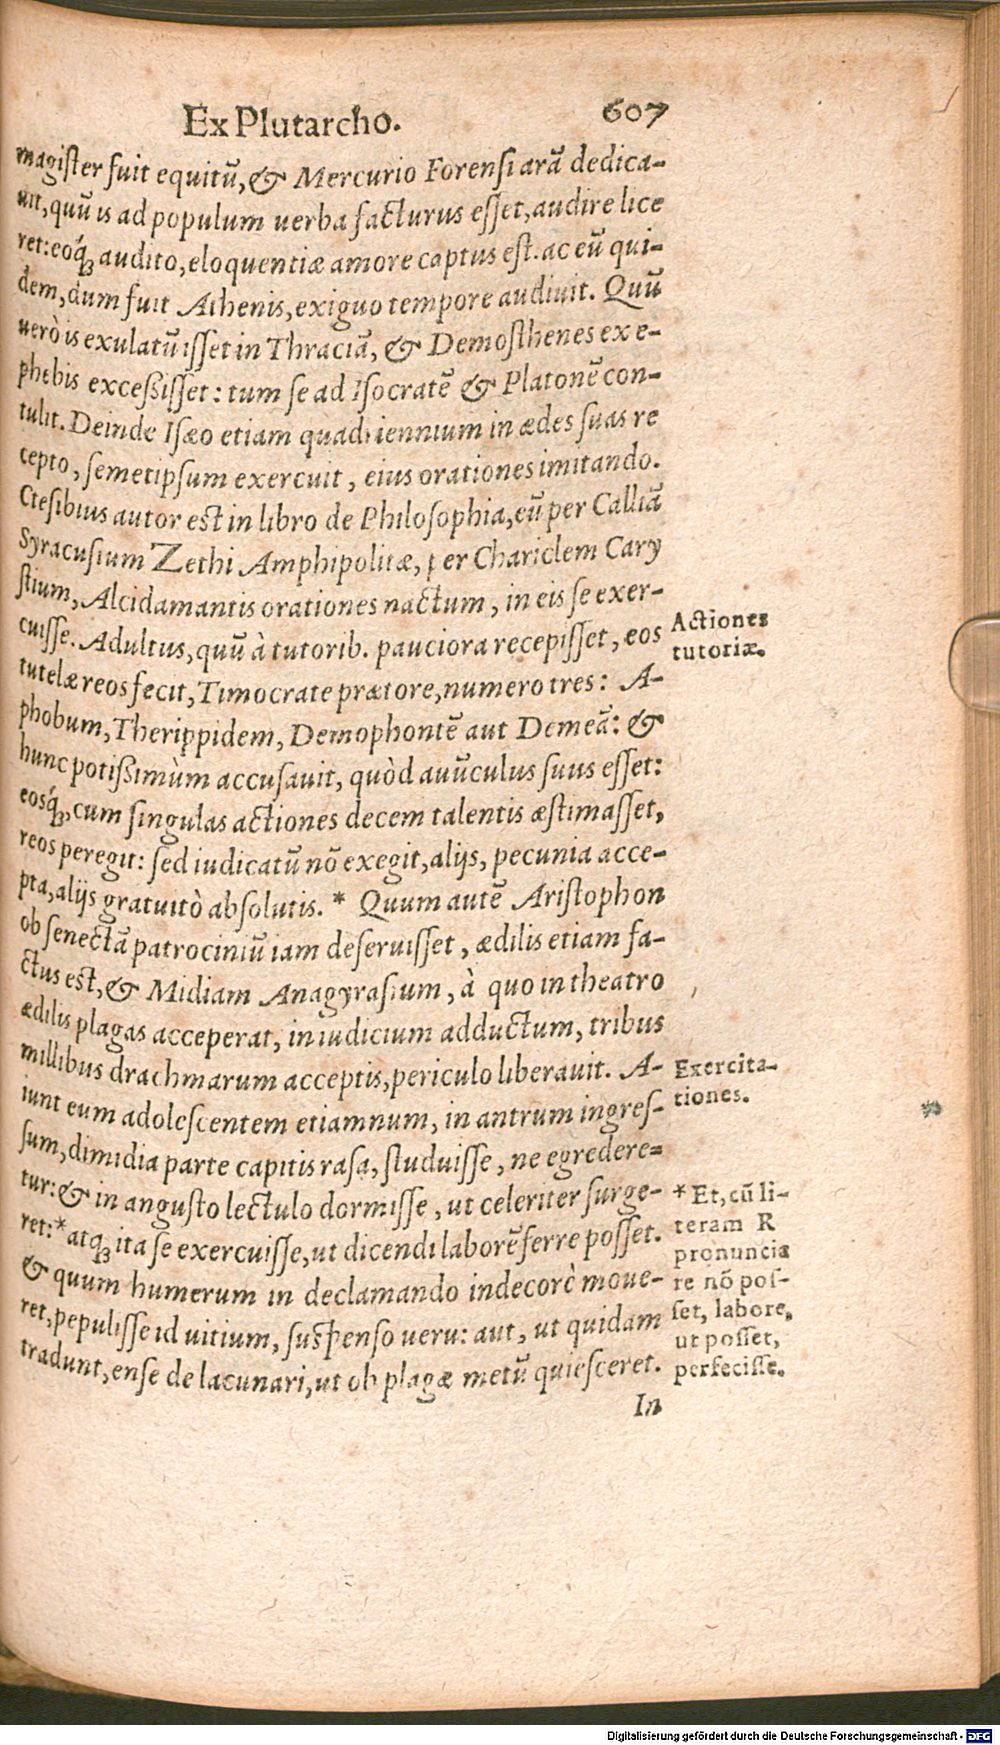 Ex Plutarcho. 607
magister fuit equitũ, & Mercurio Forensi arã dedica-
uit, quũ is ad populum uerba facturus esset, audire lice
ret: eoq́ꝫ audito, eloquentiæ amore captus est. ac eũ qui-
dem, dum fuit Athenis, exiguo tempore audiuit. Quũ
uerò is exulatũ isset in Thraciã, & Demosthenes ex e-
phebis excessisset: tum se ad Isocratẽ & Platonẽ con-
tulit. Deinde Isæo etiam quadriennium in ædes suas re
cepto, semetipsum exercuit, eius orationes imitando.
Ctesibius autor est in libro de Philosophia, eũ per Calliã
Syracusium Zethi Amphipolitæ, per Chariclem Cary
stium, Alcidamantis orationes nactum, in eis se exer-
cuisse. Adultus, quũ à tutorib. pauciora recepisset, eos
tutelæ reos fecit, Timocrate prætore, numero tres: A-
phobum, Therippidem, Demophontẽ aut Demeã: &
hunc potissimùm accusauit, quòd auũculus suus esset:
eosq́ꝫ, cum singulas actiones decem talentis æstimasset,
reos peregit: sed iudicatũ nõ exegit, alijs, pecunia acce-
pta, alijs gratuitò absolutis. * Quum autẽ Aristophon
ob senectã patrociniũ iam deseruisset, ædilis etiam fa-
ctus est, & Midiam Anagyrasium, à quo in theatro
ædilis plagas acceperat, in iudicium adductum, tribus
millibus drachmarum acceptis, periculo liberauit. A-
iunt eum adolescentem etiamnum, in antrum ingres-
sum, dimidia parte capitis rasa, studuisse, ne egredere-
tur: & in angusto lectulo dormisse, ut celeriter surge-
ret: * atqꝫ ita se exercuisse, ut dicendi laborẽ ferre posset.
& quum humerum in declamando indecorè moue-
ret, pepulisse id uitium, suspenso ueru: aut, ut quidam
tradunt, ense de lacunari, ut ob plagæ metũ quiesceret.
In
Actiones
tutoriæ.
Exercita-
tiones.
* Et, cũ li-
teram R
pronuncia
re nõ pos-
set, labore,
ut posset,
perfecisse.
Digitalisierung gefördert durch die Deutsche Forschungsgemeinschaft - DFG